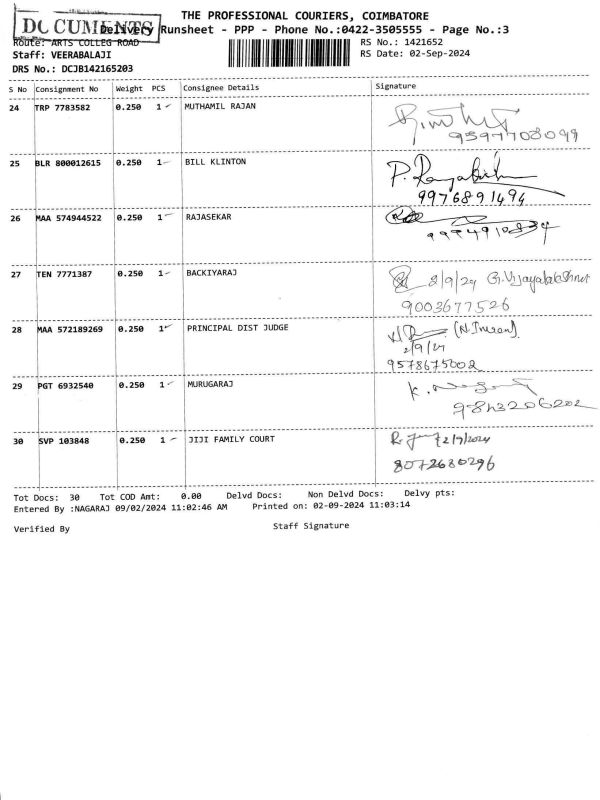 THE PROFESSIONAL COURIERS, COIMBATORE
DOCUMENTS
Delivery Runsheet - PPP - Phone No.:0422-3505555 - Page No.:3
Route: ARTS COLLEG ROAD
RS No.: 1421652
Staff: VEERABALAJI
RS Date: 02-Sep-2024
DRS No.: DCJB142165203
S No Consignment No Weight PCS Consignee Details Signature
24 TRP 7783582 0.250 1 MUTHAMIL RAJAN
9597708099
25 BLR 800012615 0.250 1 BILL KLINTON
9976891494
26 MAA 574944522 0.250 1 RAJASEKAR
27 TEN 7771387 0.250 1 BACKIYARAJ
8/9/24 G.Vijayalakshmi
9003677526
28 MAA 572189269 0.250 1 PRINCIPAL DIST JUDGE
2/9/24
9578675002
29 PGT 6932540 0.250 1 MURUGARAJ
9843206202
30 SVP 103848 0.250 1 JIJI FAMILY COURT
2/9/2024
8072680296
Tot Docs: 30 Tot COD Amt: 0.00 Delvd Docs: Non Delvd Docs: Delvy pts:
Entered By :NAGARAJ 09/02/2024 11:02:46 AM Printed on: 02-09-2024 11:03:14
Verified By Staff Signature